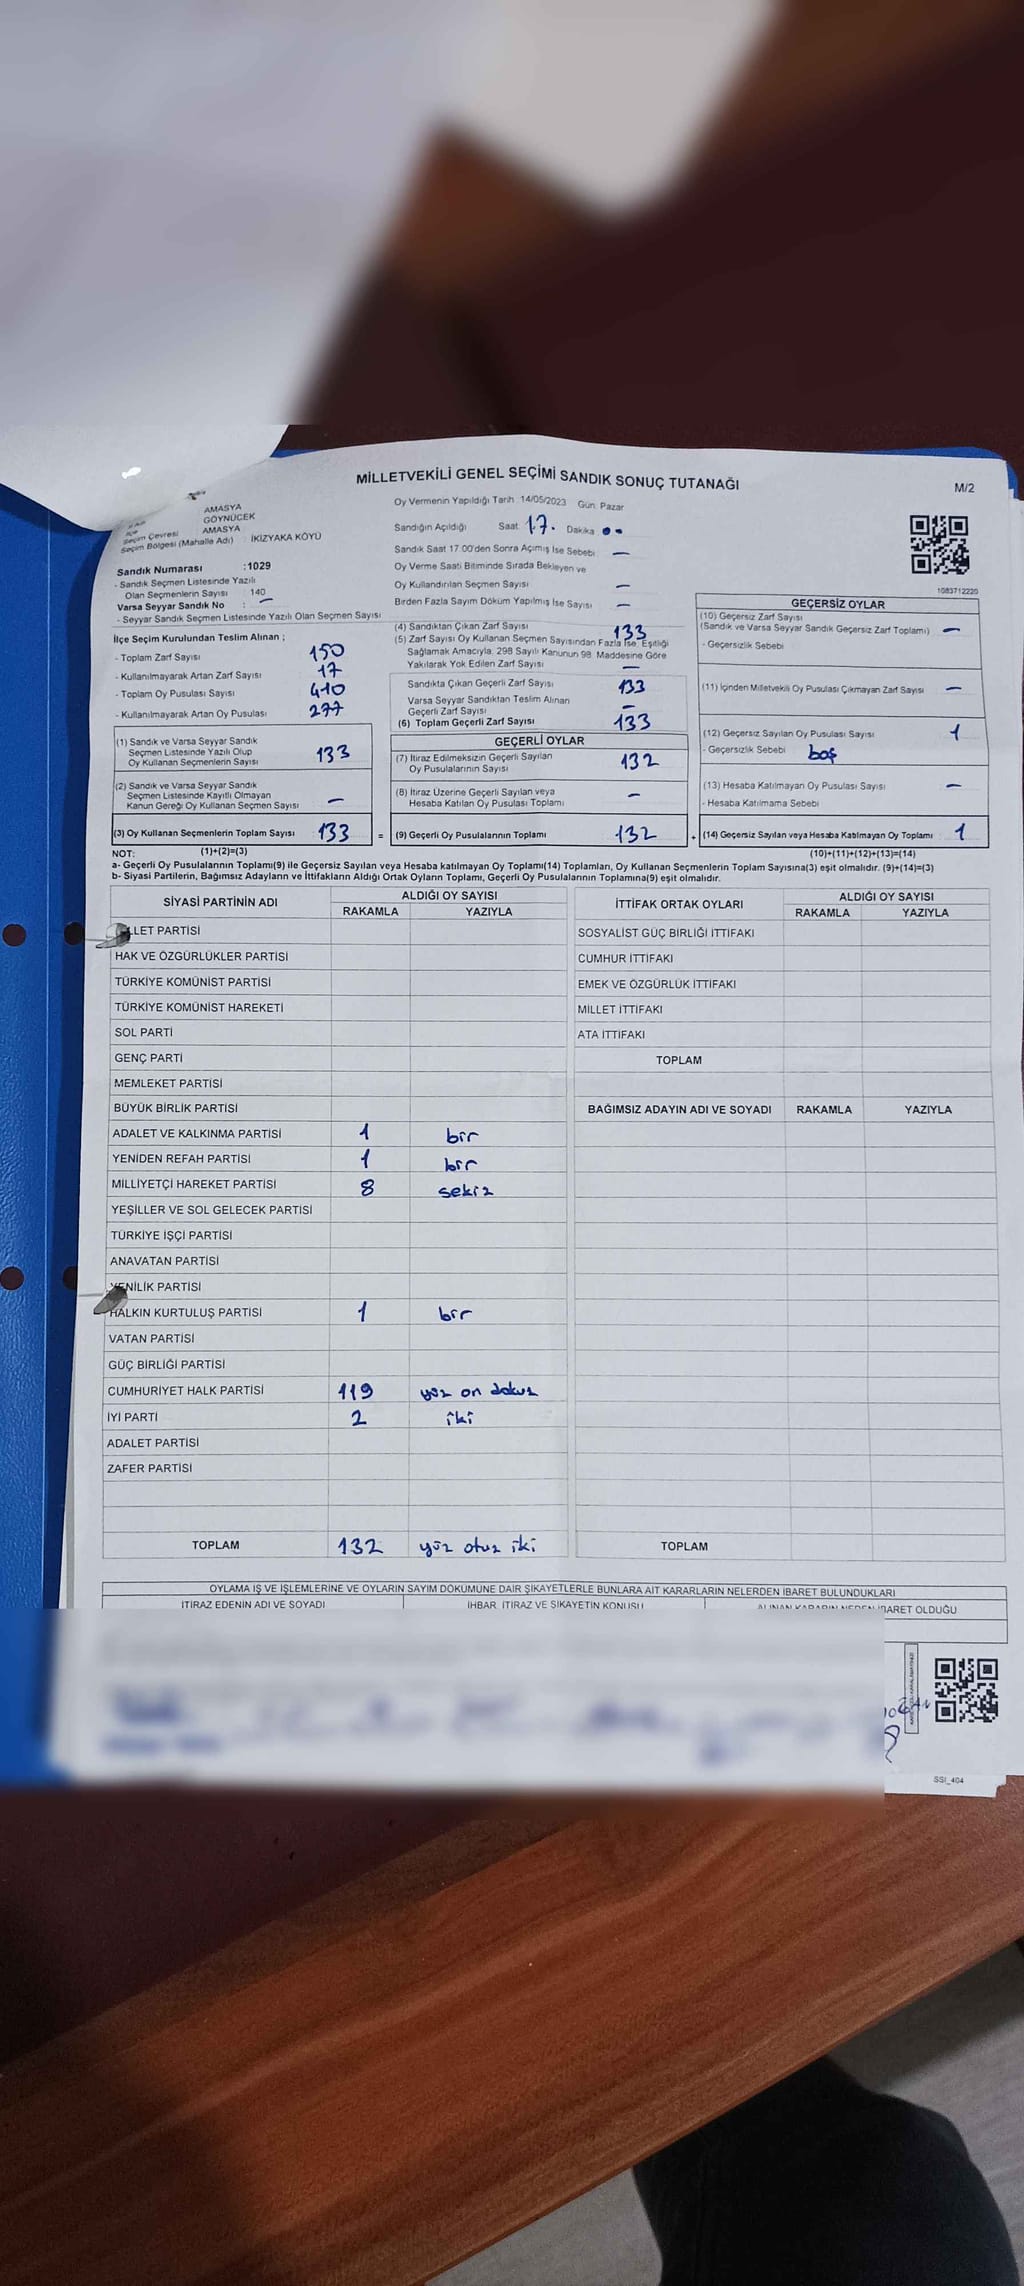 MİLLETVEKİLİ GENEL SEÇİMİ SANDIK SONUÇ TUTANAĞI
M/2
AMASYA
İlçe GÖYNÜCEK
Seçim Çevresi AMASYA
Seçim Bölgesi (Mahalle Adı) : İKİZYAKA KÖYÜ
Sandık Numarası :1029
- Sandık Seçmen Listesinde Yazılı
Olan Seçmenlerin Sayısı 140
Varsa Seyyar Sandık No : –
- Seyyar Sandık Seçmen Listesinde Yazılı Olan Seçmen Sayısı
İlçe Seçim Kurulundan Teslim Alınan ;
- Toplam Zarf Sayısı 150
- Kullanılmayarak Artan Zarf Sayısı 17
- Toplam Oy Pusulası Sayısı 410
- Kullanılmayarak Artan Oy Pusulası 277
(1) Sandık ve Varsa Seyyar Sandık
Seçmen Listesinde Yazılı Olup
Oy Kullanan Seçmenlerin Sayısı 133
(2) Sandık ve Varsa Seyyar Sandık
Seçmen Listesinde Kayıtlı Olmayan
Kanun Gereği Oy Kullanan Seçmen Sayısı –
(3) Oy Kullanan Seçmenlerin Toplam Sayısı 133 =
Oy Vermenin Yapıldığı Tarih 14/05/2023 Gün: Pazar
Sandığın Açıldığı Saat 17. Dakika ••
Sandık Saat 17:00'den Sonra Açımış İse Sebebi –
Oy Verme Saati Bitiminde Sırada Bekleyen ve
Oy Kullandırılan Seçmen Sayısı –
Birden Fazla Sayım Döküm Yapılmış İse Sayısı –
(4) Sandıktan Çıkan Zarf Sayısı 133
(5) Zarf Sayısı Oy Kullanan Seçmen Sayısından Fazla İse; Eşitliği
Sağlamak Amacıyla; 298 Sayılı Kanunun 98. Maddesine Göre
Yakılarak Yok Edilen Zarf Sayısı –
Sandıkta Çıkan Geçerli Zarf Sayısı 133
Varsa Seyyar Sandıktan Teslim Alınan
Geçerli Zarf Sayısı –
(6) Toplam Geçerli Zarf Sayısı 133
GEÇERLİ OYLAR
(7) İtiraz Edilmeksizin Geçerli Sayılan
Oy Pusulalarının Sayısı 132
(8) İtiraz Üzerine Geçerli Sayılan veya
Hesaba Katılan Oy Pusulası Toplamı –
(9) Geçerli Oy Pusulalarının Toplamı 132 +
1083712220
GEÇERSİZ OYLAR
(10) Geçersiz Zarf Sayısı
(Sandık ve Varsa Seyyar Sandık Geçersiz Zarf Toplamı) –
- Geçersizlik Sebebi
(11) İçinden Milletvekili Oy Pusulası Çıkmayan Zarf Sayısı –
(12) Geçersiz Sayılan Oy Pusulası Sayısı 1
- Geçersizlik Sebebi boş
(13) Hesaba Katılmayan Oy Pusulası Sayısı –
- Hesaba Katılmama Sebebi
(14) Geçersiz Sayılan veya Hesaba Katılmayan Oy Toplamı 1
NOT: (1)+(2)=(3) (10)+(11)+(12)+(13)=(14)
a- Geçerli Oy Pusulalarının Toplamı(9) ile Geçersiz Sayılan veya Hesaba katılmayan Oy Toplamı(14) Toplamları, Oy Kullanan Seçmenlerin Toplam Sayısına(3) eşit olmalıdır. (9)+(14)=(3)
b- Siyasi Partilerin, Bağımsız Adayların ve İttifakların Aldığı Ortak Oyların Toplamı, Geçerli Oy Pusulalarının Toplamına(9) eşit olmalıdır.
SİYASİ PARTİNİN ADI ALDIĞI OY SAYISI
RAKAMLA YAZIYLA
LLET PARTİSİ
HAK VE ÖZGÜRLÜKLER PARTİSİ
TÜRKİYE KOMÜNİST PARTİSİ
TÜRKİYE KOMÜNİST HAREKETİ
SOL PARTİ
GENÇ PARTİ
MEMLEKET PARTİSİ
BÜYÜK BİRLİK PARTİSİ
ADALET VE KALKINMA PARTİSİ 1 bir
YENİDEN REFAH PARTİSİ 1 bir
MİLLİYETÇİ HAREKET PARTİSİ 8 sekiz
YEŞİLLER VE SOL GELECEK PARTİSİ
TÜRKİYE İŞÇİ PARTİSİ
ANAVATAN PARTİSİ
YENİLİK PARTİSİ
HALKIN KURTULUŞ PARTİSİ 1 bir
VATAN PARTİSİ
GÜÇ BİRLİĞİ PARTİSİ
CUMHURİYET HALK PARTİSİ 119 yüz on dokuz
İYİ PARTİ 2 iki
ADALET PARTİSİ
ZAFER PARTİSİ
TOPLAM 132 yüz otuz iki
İTTİFAK ORTAK OYLARI ALDIĞI OY SAYISI
RAKAMLA YAZIYLA
SOSYALİST GÜÇ BİRLİĞİ İTTİFAKI
CUMHUR İTTİFAKI
EMEK VE ÖZGÜRLÜK İTTİFAKI
MİLLET İTTİFAKI
ATA İTTİFAKI
TOPLAM
BAĞIMSIZ ADAYIN ADI VE SOYADI RAKAMLA YAZIYLA
TOPLAM
OYLAMA İŞ VE İŞLEMLERİNE VE OYLARIN SAYIM DÖKÜMÜNE DAİR ŞİKAYETLERLE BUNLARA AİT KARARLARIN NELERDEN İBARET BULUNDUKLARI
İTİRAZ EDENİN ADI VE SOYADI İHBAR, İTİRAZ VE ŞİKAYETİN KONUSU ALINAN KARARIN NEDEN İBARET OLDUĞU
SSI_404